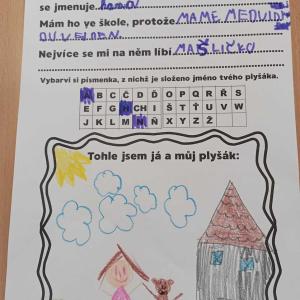 se jmenuje
Mám ho ve škole, protože MAME MEDVIDI
Nejvíce se mi na něm líbí MAŠLIČKO
Vybarvi si písmenka, z nichž je složeno jméno tvého plyšáka.
A B C Č D Ď O P Q R Ř S
E F G H CH I Š T Ť U V W
J K L M N Ň X Y Z Ž
Tohle jsem já a můj plyšák: